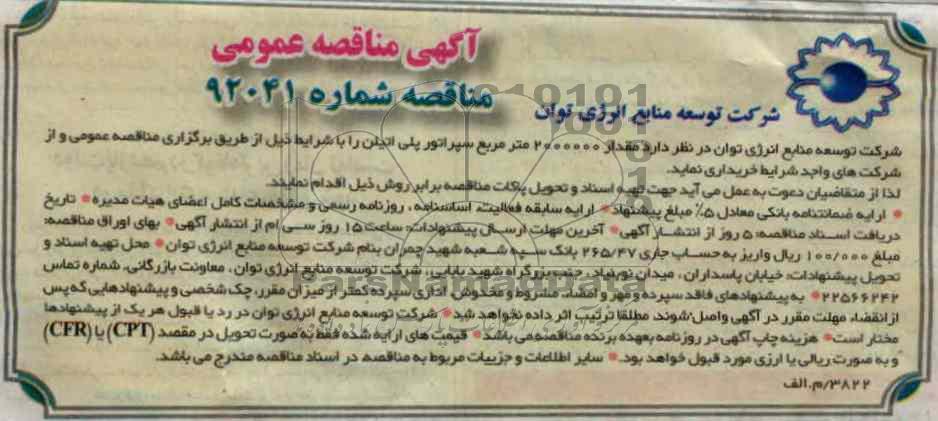 آگهی مناقصه عمومی
مناقصه شماره ۹۲۰۴۱
شرکت توسعه منابع انرژی توان
شرکت توسعه منابع انرژی توان در نظر دارد مقدار ۲۰۰۰۰۰۰ متر مربع سپراتور پلی اتیلن را با شرایط ذیل از طریق برگزاری مناقصه عمومی و از
شرکت های واجد شرایط خریداری نماید.
لذا از متقاضیان دعوت به عمل می آید جهت تهیه اسناد و تحویل پاکات مناقصه برابر روش ذیل اقدام نمایند.
* ارایه ضمانتنامه بانکی معادل ۵٪ مبلغ پیشنهاد* ارایه سابقه فعالیت، اساسنامه، روزنامه رسمی و مشخصات کامل اعضای هیات مدیره* تاریخ
دریافت اسناد مناقصه: ۵ روز از انتشار آگهی* آخرین مهلت ارسال پیشنهادات: ساعت ۱۵ روز سی ام از انتشار آگهی* بهای اوراق مناقصه:
مبلغ ۱۰۰/۰۰۰ ریال واریز به حساب جاری ۲۶۵/۴۷ بانک سپه شعبه شهید چمران بنام شرکت توسعه منابع انرژی توان* محل تهیه اسناد و
تحویل پیشنهادات: خیابان پاسداران، میدان نوبنیاد، جنب بزرگراه شهید بابایی، شرکت توسعه منابع انرژی توان، معاونت بازرگانی. شماره تماس
۲۲۵۶۶۲۴۲* به پیشنهادهای فاقد سپرده و مهر و امضاء، مشروط و مخدوش، دارای سپرده کمتر از میزان مقرر، چک شخصی و پیشنهادهایی که پس
از انقضاء مهلت مقرر در آگهی واصل شوند، مطلقا ترتیب اثر داده نخواهد شد* شرکت توسعه منابع انرژی توان در رد یا قبول هر یک از پیشنهادها
مختار است* هزینه چاپ آگهی در روزنامه بعهده برنده مناقصه می باشد* قیمت های ارایه شده فقط به صورت تحویل در مقصد (CPT) یا (CFR)
و به صورت ریالی یا ارزی مورد قبول خواهد بود.* سایر اطلاعات و جزییات مربوط به مناقصه در اسناد مناقصه مندرج می باشد.
۳۸۲۲/م.الف
ParsNamadData